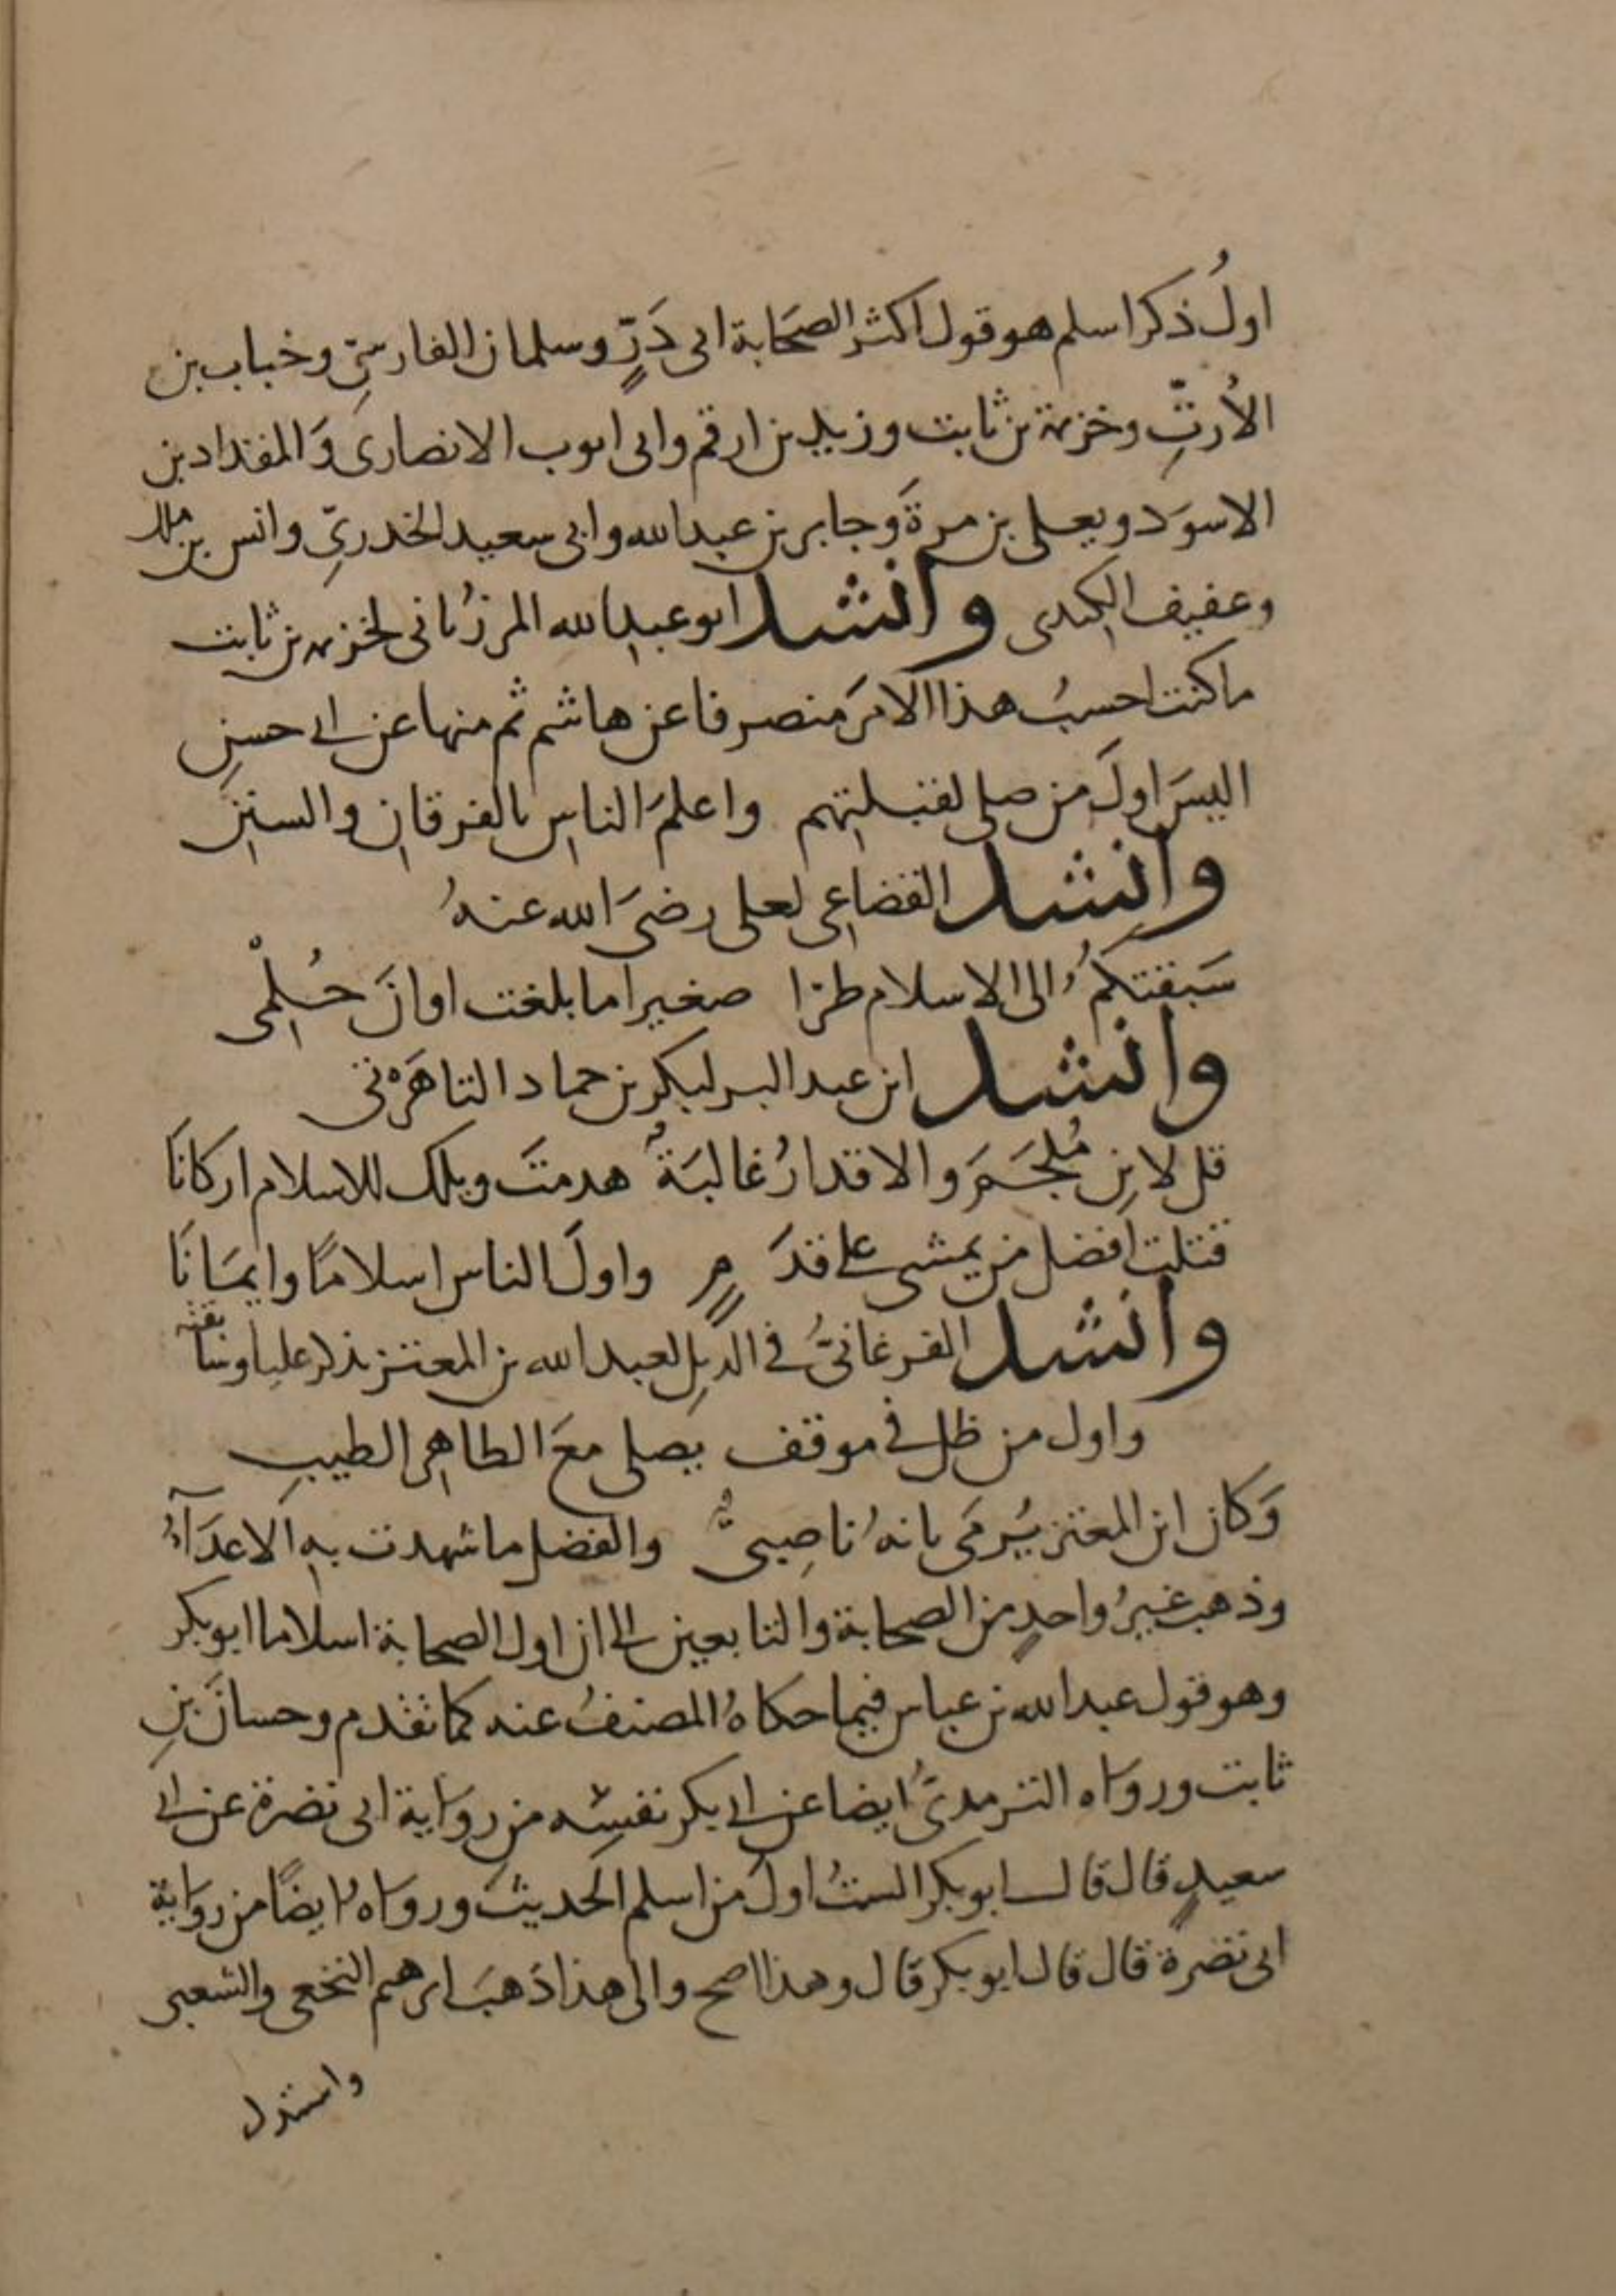 اولُ ذكر اسلم هو قول اكثر الصحَابة ابى ذَرٍّ وسلمان الفارسىِّ وخباب بن
الأرتِّ وخزيمة بن ثابت وزيد بن ارقم وابى ايوب الانصارى وَالمقداد بن
الاسوَد ويعلى بن مرةَ وجابر بن عبد الله وابى سعيد الخدرىِّ وانس بن ملك
وعفيف الكندى وانشد ابو عبد الله المرزُبانى لخزيمة بن ثابت
ما كنت احسبُ هذا الامرَ منصرفا عن هاشم ثم منها عن ابى حسنِ
اليسَ اولَ من صلى لقبلتهم واعلمَ الناسِ بالفرقانِ والسننِ
وانشد القضاعى لعلى رضىَ الله عنهُ
سَبقتكمُ الى الاسلام طرا صغيرا ما بلغت اوانَ حُلْمى
وانشد ابن عبد البر لبكر بن حماد التاهَرْتى
قل لابنِ مُلجَمَ والاقدارُ غالبَةٌ هدمتَ ويلك للاسلام اركانَا
قتلت افضل من يمشى على قدَمٍ واولَ الناس اسلامًا وايمَانَا
وانشد الفرغانىُّ فى الذيلِ لعبد الله بن المعتز يذكر عليا وسَابقته
واول من ظل فى موقف يصلى معَ الطاهر الطيبِ
وَكان ابن المعتز يُرمَى بانهُ ناصِبىٌّ والفضل ما شهدت بهِ الاعدَآءُ
وذهب غيرُ واحدٍ من الصحابة والتابعين الى ان اول الصحابة اسلاما ابو بكر
وهو قول عبد الله بن عباس فيما حكاهُ المصنفُ عنه كما تقدم وحسانَ بنِ
ثابت وروَاه الترمذىُّ ايضا عن ابى بكر نفسِه من روَاية ابى نضرة عن ابى
سعيدٍ قال قال ابو بكر الستُ اولَ من اسلم الحديثَ وروَاه ايضًا من روَاية
ابى نضرة قال قال ابو بكر قال وهذا اصح والى هذا ذهَبَ ابرهيم النخعى والشعبى
واستدل